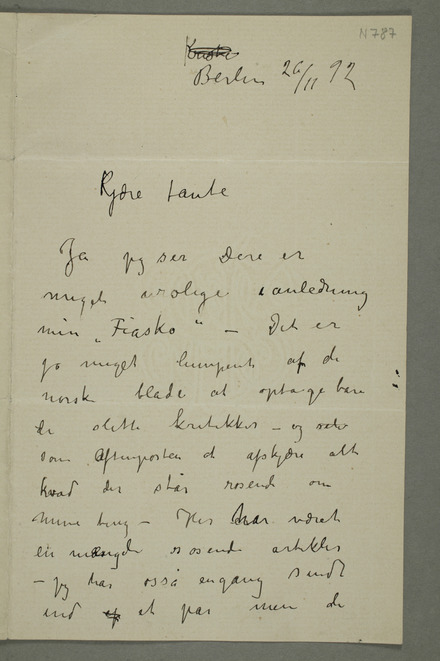 N 787
Berlin 26/11 92
Kjære tante
Ja jeg ser Dere er
meget urolige i anledning
min „Fiasko" – Det er
jo meget lumpent af de
norske blade at optage bare
de slette kritikker – og
som Aftenposten at afskjære alt
hvad der står rosende om
mine ting – Her har været
en mængde rosende artikler
– jeg har også engang sendt
ind et par men de